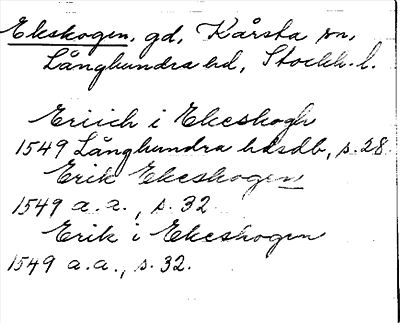 Ekskogen, gd, Kårsta sn,
Långhundra hd, Stockh. l.
Eriich i Ekeskogh
1549 Långhundra hdsdb, s. 28
Erik Ekeskogen
1549 a.a., s. 32
Erik i Ekeskogen
1549 a.a., s. 32.